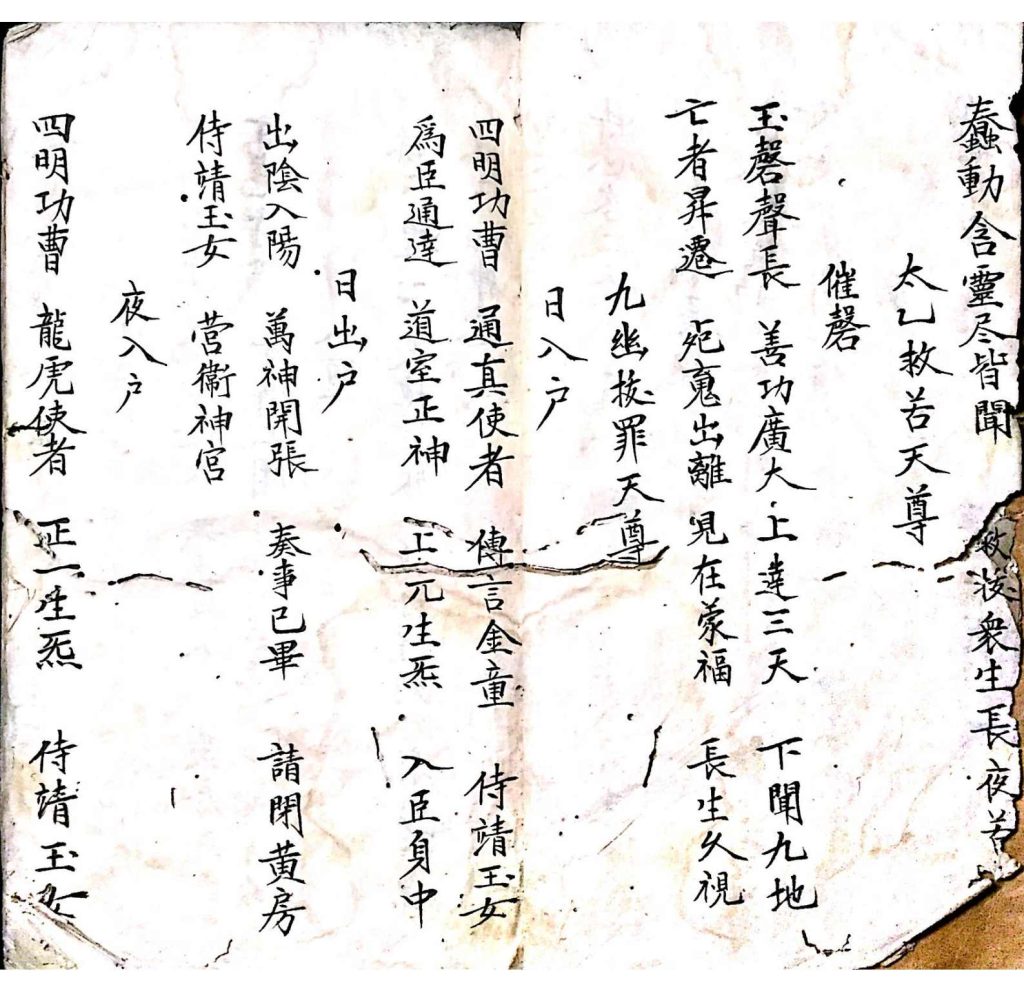 蠢動含靈尽皆聞 救拔衆生長夜苦
太乙救苦天尊
催磬
玉磬聲長 善功廣大 上達三天 下聞九地
亡者昇遷 苑魂出離 見在蒙福 長生久視
九幽拔罪天尊
日入户
四明功曹 通真使者 傳言金童 侍靖玉女
爲臣通達 道室正神 上元生炁 入臣身中
日出户
出陰入陽 萬神開張 奏事已畢 請閉黄房
侍靖玉女 营衛神官
夜入户
四明功曹 龍虎使者 正一生炁 侍靖玉女